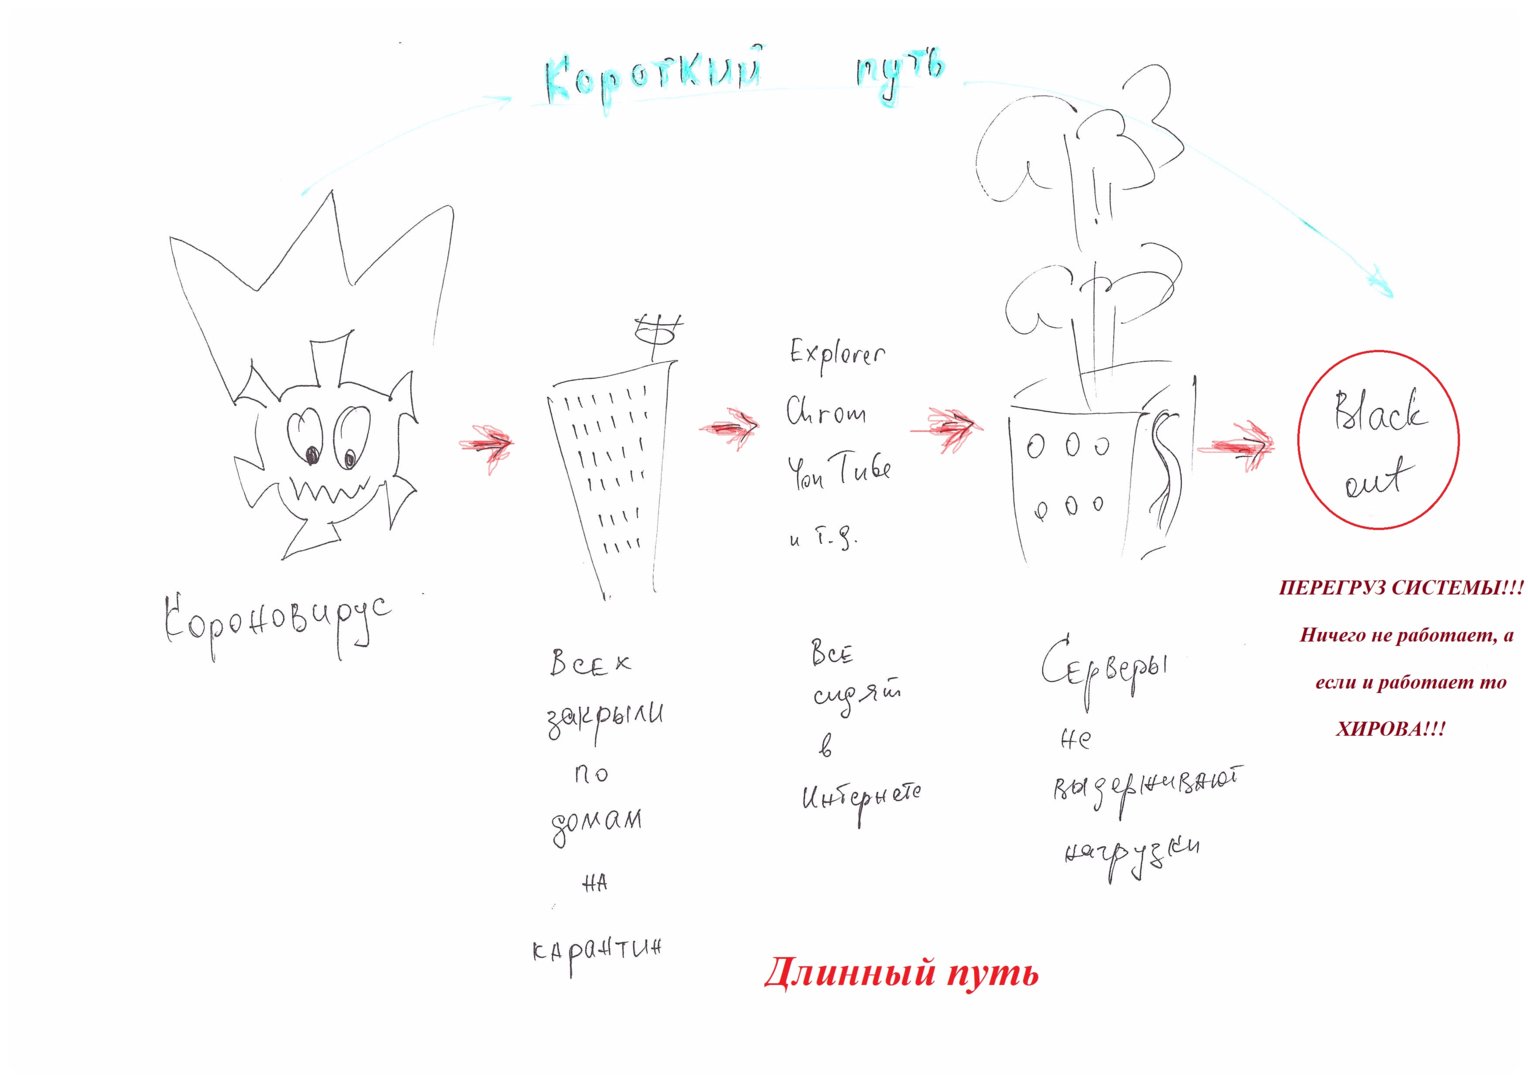 Короткий путь
Короновирус
Всех
закрыли
по
домам
на
карантин
Explorer
Chrom
YouTube
и т.д.
Все
сидят
в
Интернете
Серверы
не
выдерживают
нагрузки
Black
out
ПЕРЕГРУЗ СИСТЕМЫ!!!
Ничего не работает, а
если и работает то
ХИРОВА!!!
Длинный путь